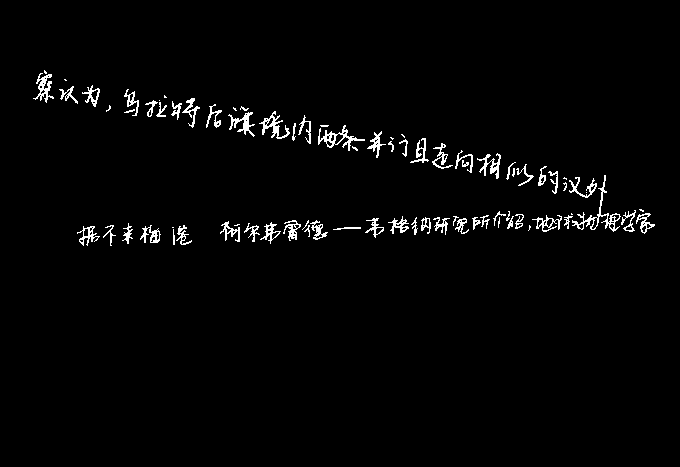 察认为,乌拉特后旗境内两条并行且走向相似的汉外
据不来梅港 阿尔弗雷德——韦格纳研究所介绍,地球物理学家